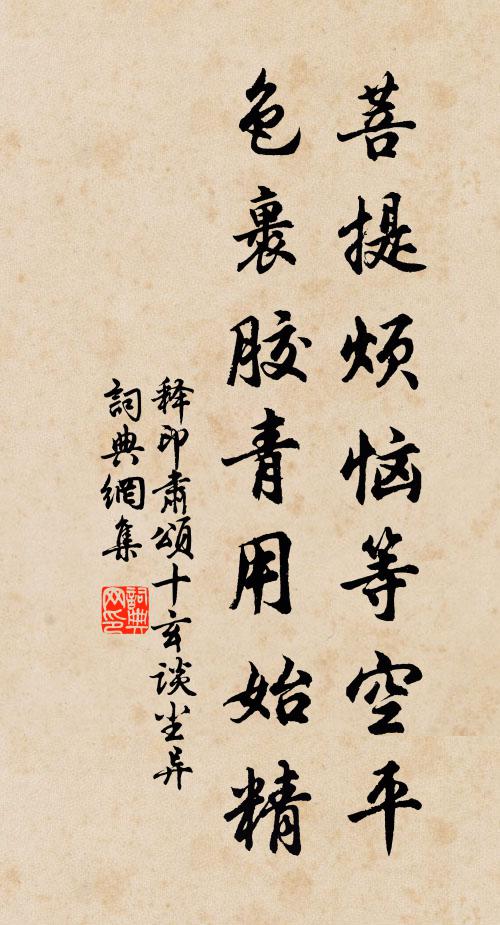 菩提烦恼等空平
色裹胶青用始精
释印肃颂十玄谈尘异
詞典網集
詞典网印